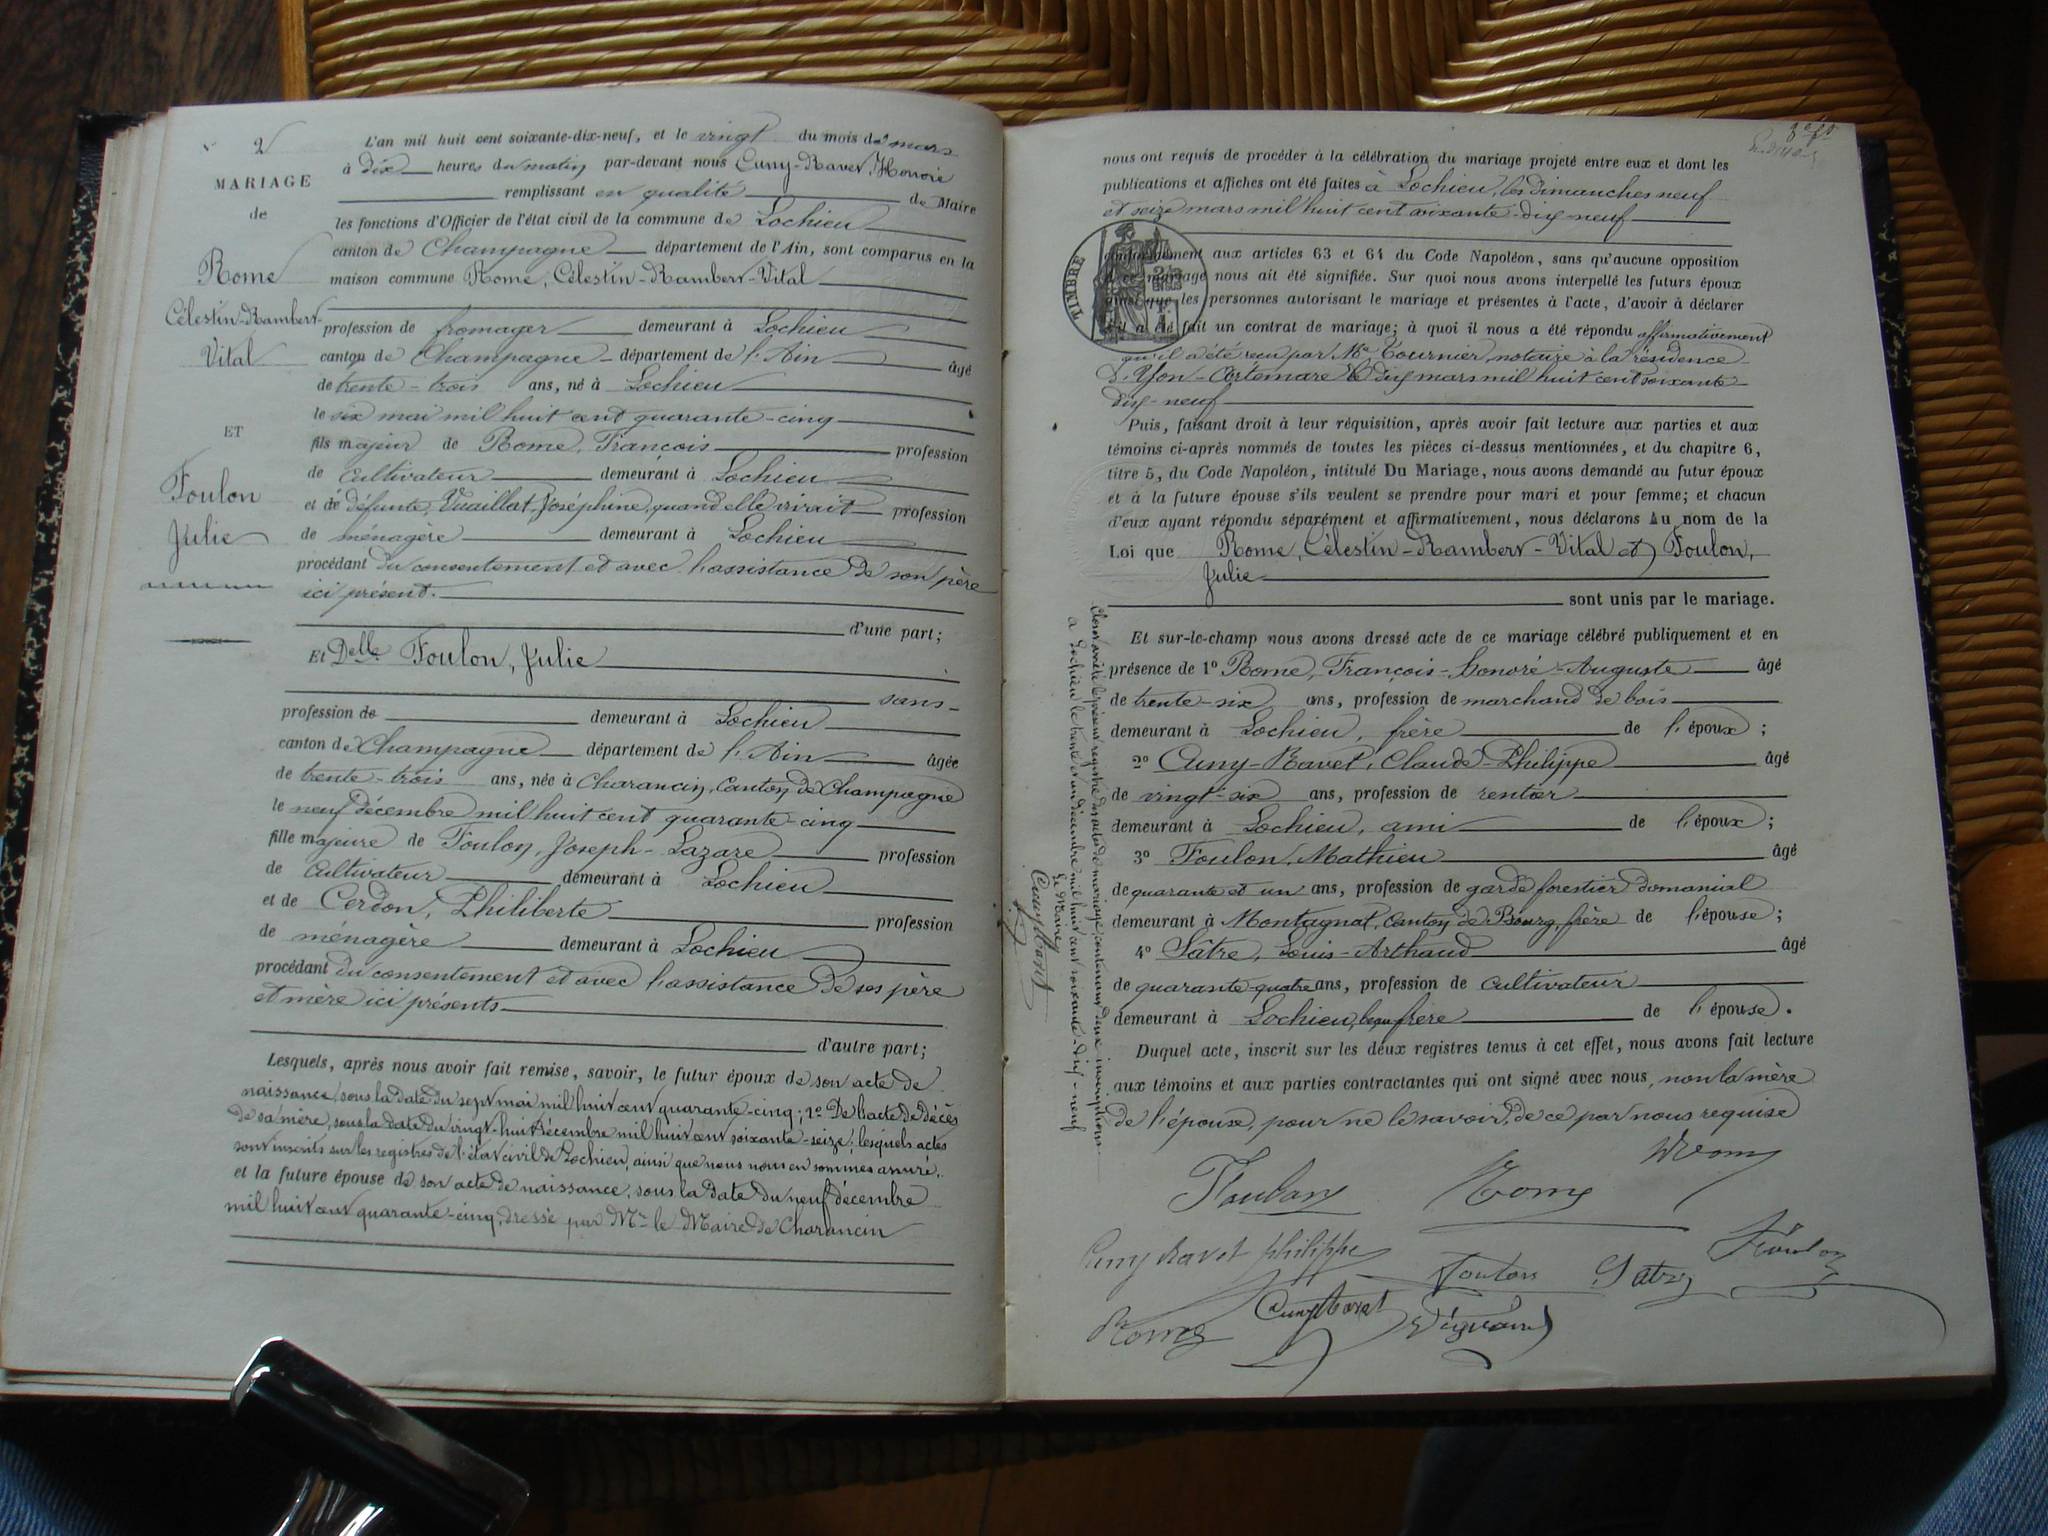 2
MARIAGE
de
Rome
Célestin-Rambert-
Vital
ET
Foulon
Julie
L'an mil huit cent soixante-dix-neuf, et le vingt du mois de mars
à dix heures du matin par-devant nous Cuny-Ravet, Honoré
remplissant en qualité de Maire
les fonctions d'Officier de l'état civil de la commune de Lochieu
canton de Champagne département de l'Ain, sont comparus en la
maison commune Rome, Célestin-Rambert-Vital
profession de fromager demeurant à Lochieu
canton de Champagne département de l'Ain âgé
de trente-trois ans, né à Lochieu
le six mai mil huit cent quarante-cinq
fils majeur de Rome, François profession
de cultivateur demeurant à Lochieu
et de défunte, Vuaillat, Joséphine, quand elle vivait profession
de ménagère demeurant à Lochieu
procédant du consentement et avec l'assistance de son père
ici présent.
d'une part;
Et Delle Foulon, Julie
sans
profession de demeurant à Lochieu
canton de Champagne département de l'Ain âgée
de trente-trois ans, née à Charancin, canton de Champagne
le neuf décembre mil huit cent quarante-cinq
fille majeure de Foulon, Joseph-Lazare profession
de cultivateur demeurant à Lochieu
et de Cerdon, Philiberte profession
de ménagère demeurant à Lochieu
procédant du consentement et avec l'assistance de ses père
et mère ici présents
d'autre part;
Lesquels, après nous avoir fait remise, savoir, le futur époux de son acte de
naissance, sous la date du sept mai mil huit cent quarante-cinq; 1º De l'acte de décès
de sa mère, sous la date du vingt-huit décembre mil huit cent soixante-seize; lesquels actes
sont inscrits sur les registres de l'état civil de Lochieu, ainsi que nous nous en sommes assuré.
et la future épouse de son acte de naissance, sous la date du neuf décembre
mil huit cent quarante-cinq, dressé par Mr le Maire de Charancin
nous ont requis de procéder à la célébration du mariage projeté entre eux et dont les
publications et affiches ont été faites à Lochieu, les dimanches neuf
et seize mars mil huit cent soixante-dix-neuf
TIMBRE
conformément aux articles 63 et 64 du Code Napoléon, sans qu'aucune opposition
à ce mariage nous ait été signifiée. Sur quoi nous avons interpellé les futurs époux
ainsi que les personnes autorisant le mariage et présentes à l'acte, d'avoir à déclarer
s'il a été fait un contrat de mariage; à quoi il nous a été répondu affirmativement
qu'il a été reçu par Me Tournier, notaire à la résidence
d'Yon-Artemare le dix mars mil huit cent soixante
dix-neuf
Puis, faisant droit à leur réquisition, après avoir fait lecture aux parties et aux
témoins ci-après nommés de toutes les pièces ci-dessus mentionnées, et du chapitre 6,
titre 5, du Code Napoléon, intitulé Du Mariage, nous avons demandé au futur époux
et à la future épouse s'ils veulent se prendre pour mari et pour femme; et chacun
d'eux ayant répondu séparément et affirmativement, nous déclarons Au nom de la
Loi que Rome, Célestin-Rambert-Vital et Foulon,
Julie
sont unis par le mariage.
Et sur-le-champ nous avons dressé acte de ce mariage célébré publiquement et en
présence de 1º Rome, François-Honoré-Auguste âgé
de trente-six ans, profession de marchand de bois
demeurant à Lochieu, frère de l'époux;
2º Cuny-Ravet, Claude-Philippe âgé
de vingt-six ans, profession de rentier
demeurant à Lochieu, ami de l'époux;
3º Foulon, Mathieu âgé
de quarante et un ans, profession de garde forestier domanial
demeurant à Montagnat, canton de Bourg, frère de l'épouse;
4º Sâtre, Louis-Arthaud âgé
de quarante-quatre ans, profession de cultivateur
demeurant à Lochieu, beau frère de l'épouse.
Duquel acte, inscrit sur les deux registres tenus à cet effet, nous avons fait lecture
aux témoins et aux parties contractantes qui ont signé avec nous, non la mère
de l'épouse, pour ne le savoir, de ce par nous requise
Foulon Rome
Cuny Ravet philippe Foulon Satre Foulon
Rome Cuny Ravet
Clos et arrêté le présent registre des actes de mariage, contenant deux inscriptions
à Lochieu le trente et un décembre mil huit cent soixante-dix-neuf
Le Maire
Cuny Ravet